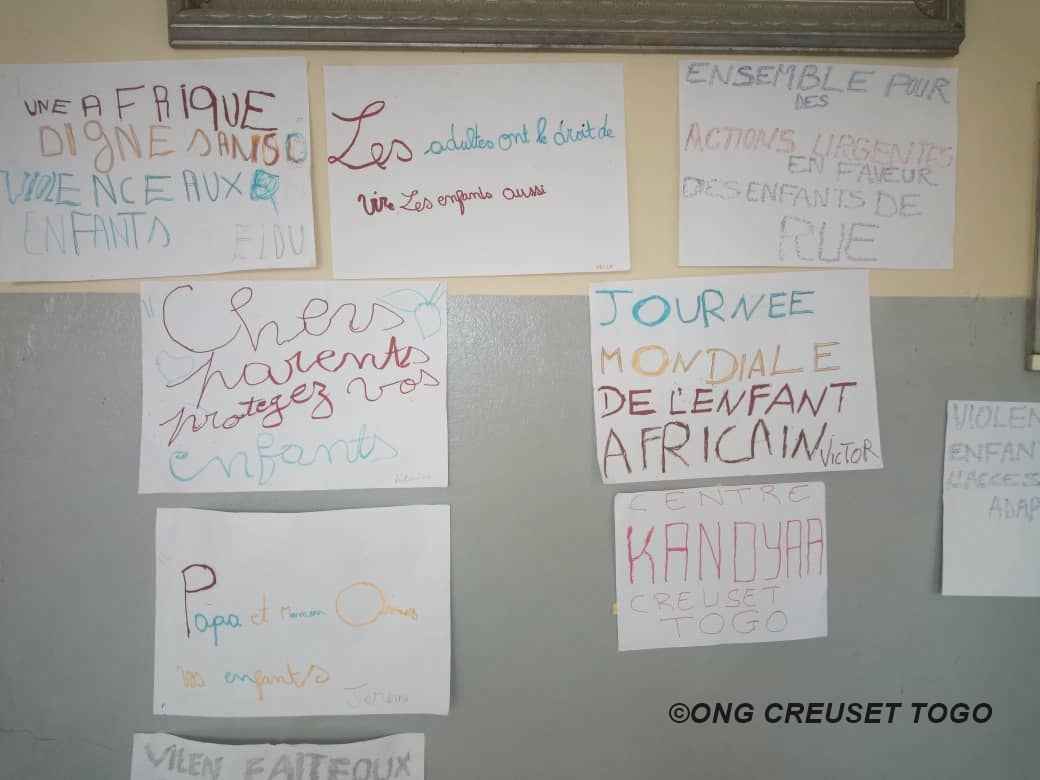 UNE AFRIQUE
DIGNE SANS
VIOLENCE AUX
ENFANTS
ELDU
Les adultes ont le droit de
vivre Les enfants aussi
ENSEMBLE POUR
DES
ACTIONS URGENTES
EN FAVEUR
DES ENFANTS DE
RUE
Chers
parents
protegez vos
enfants
JOURNEE
MONDIALE
DE L'ENFANT
AFRICAIN
VICTOR
VIOLEN
ENFANT
L'ACCES
ADAP
CENTRE
KANDYAA
CREUSET
TOGO
Papa et Maman
vos enfants
©ONG CREUSET TOGO